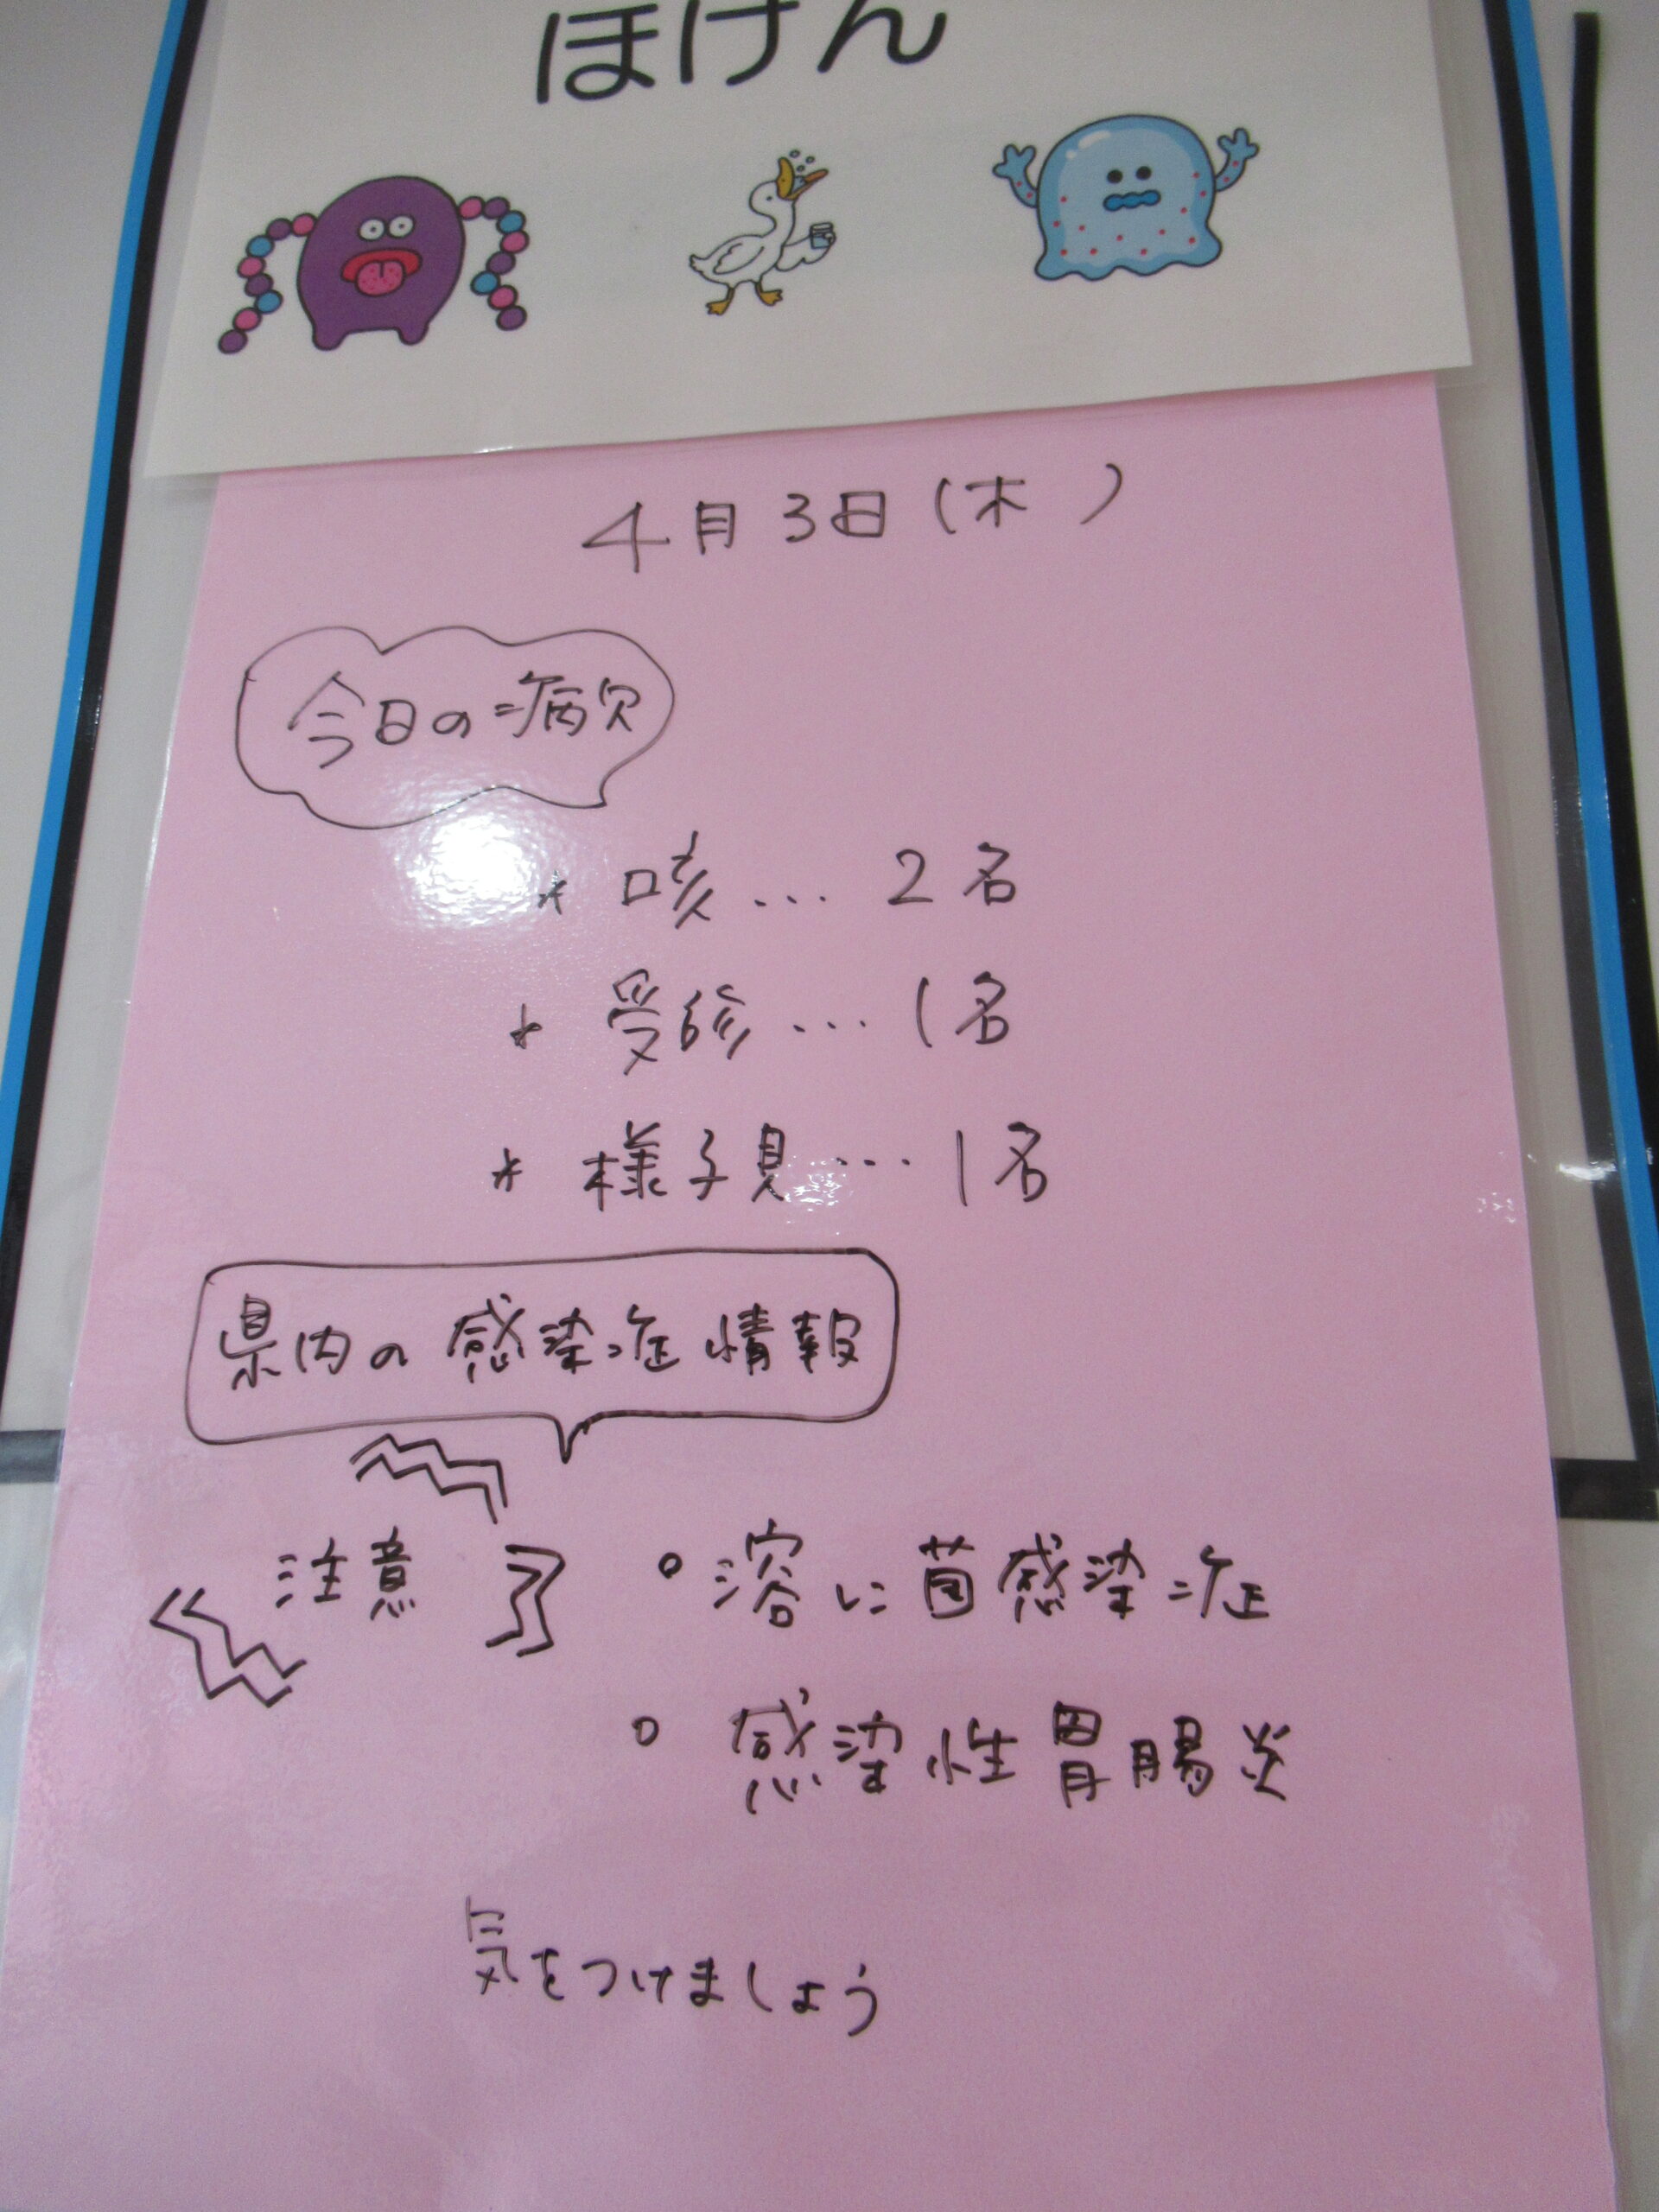 ほけん
4月3日(木)
今日の病欠
* 咳… 2名
* 受診… 1名
* 様子見… 1名
県内の感染症情報
注意
° 溶レン菌感染症
° 感染性胃腸炎
気をつけましょう